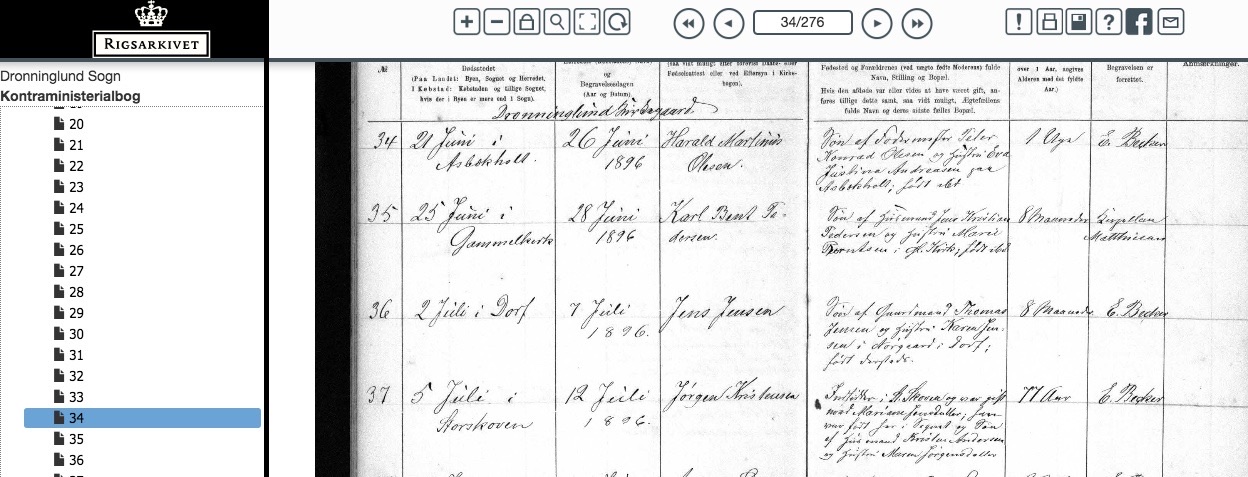 RIGSARKIVET
34/276
Dronninglund Sogn
Kontraministerialbog
20
21
22
23
24
25
26
27
28
29
30
31
32
33
34
35
36
№
Dødsstedet
(Paa Landet: Byen, Sognet og Herredet.
I Købstad: Købstaden og tillige Sognet,
hvis der i Byen er mere end 1 Sogn).
og
Begravelsesdagen
(Aar og Datum).
Fødselsattest eller ved Eftersyn i Kirke-
bogen).
Fødested og Forældrenes (ved uægte fødte Moderens) fulde
Navn, Stilling og Bopæl.
Hvis den afdøde var eller vides at have været gift, an-
føres tillige dette samt, saa vidt muligt, Ægtefællens
fulde Navn og deres sidste fælles Bopæl.
over 1 Aar, angives
Alderen med det fyldte
Aar.)
Begravelsen er
forrettet.
Anmærkninger.
Dronninglund Kirkegaard.
34
21 Juni i
Asbekholt.
26 Juni
1896
Harald Martinus
Olesen.
Søn af Peter
Konrad Olesen og Hustru Eva
Justina Andreasen paa
Asbekholt; født ibd
1 Uge
E. Becker
35
25 Juni i
Gammelkirk
28 Juni
1896
Karl Bent Pe-
dersen.
Søn af Husmand Jens Kristian
Pedersen og Hustru Marie
i Gl. Kirk; født ibd
8 Maaneder
Kapellan
Matthiesen
36
2 Juli i Dorf
7 Juli
1896.
Jens Jensen
Søn af Gaardmand Thomas
Jensen og Hustru Karen Jen-
sen i Nørgaard i Dorf;
født dersteds.
8 Maaneder
E. Becker
37
5 Juli i
Storskoven
12 Juli
1896.
Jørgen Kristensen
Indsidder i St. Skoven og var gift
med Mariane
var født her i Sognet og Søn
af Husmand Kristen Andersen
og Hustru Maren Jørgensdatter
77 Aar
E. Becker